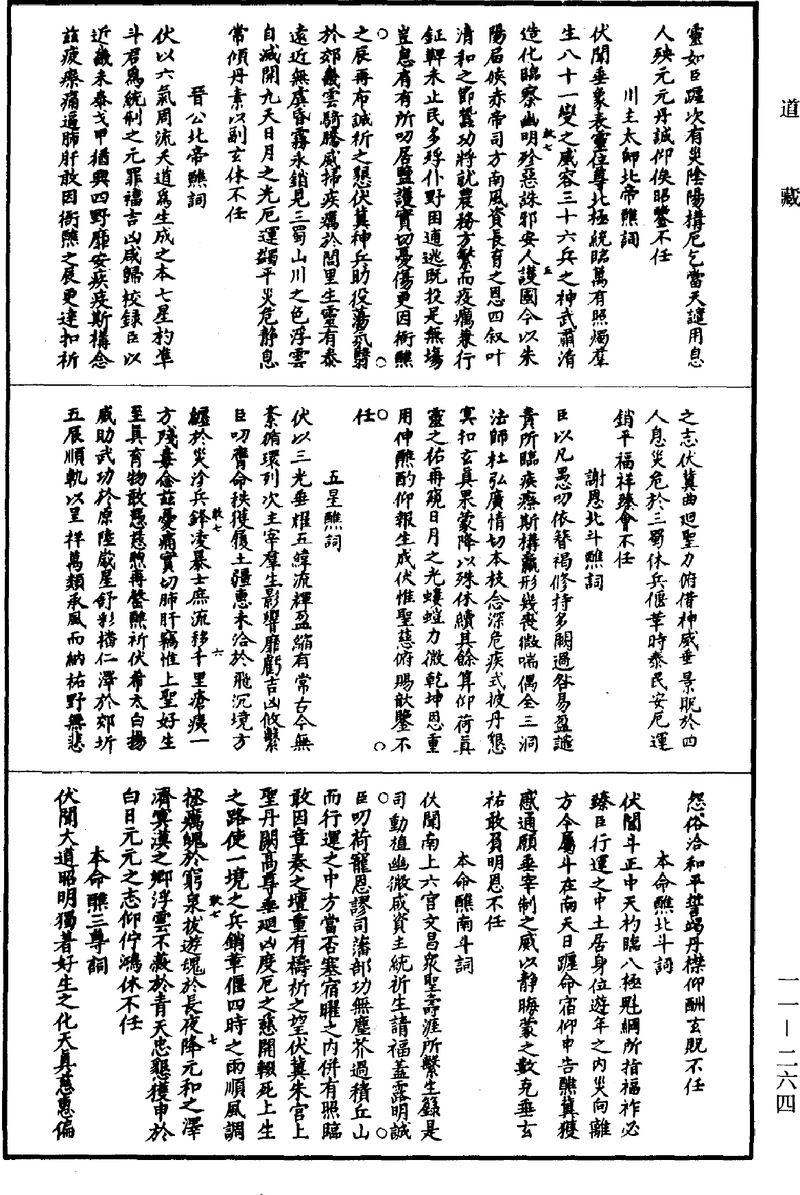 道藏
一一—二六四
靈如臣躔次有災陰陽構厄乞當天譴用息
人殃元元丹誠仰俟昭鑒不任
川主太師北帝醮詞
伏聞垂象表靈位尊北極統臨萬有照燭羣
生八十一變之威容三十六兵之神武肅清
造化臨察幽明殄惡誅邪安人護國今以朱
陽屆候赤帝司方南風資長育之恩四叙叶
清和之節蠶功將就農務方繁而疫癘兼行
鉦鞞未止民多殍仆野困逋逃既投足無塲
豈息肩有所叨居監護實切憂傷更因銜醮
之辰再布誠祈之懇伏冀神兵助役蕩氛翳
於郊畿雲騎騰威掃疾癘於閭里生靈有泰
遠近無虞昏霧永銷見三蜀山川之色浮雲
自滅開九天日月之光厄運蠲平災危靜息
常傾丹素以副玄休不任
晉公北帝醮詞
伏以六氣周流天道爲生成之本七星杓準
斗君爲統制之元罪福吉凶咸歸校錄臣以
近畿未泰戈甲猶興四野靡安疾疫斯構念
茲疲瘵痛逼肺肝敢因銜醮之辰更達扣祈
之志伏冀曲迴聖力俯借神威垂景貺於四
人息災危於三蜀休兵偃革時泰民安厄運
銷平福祥臻會不任
謝恩北斗醮詞
臣以凡愚叨依簪褐修持多闕過咎易盈譴
責所臨疾瘵斯構羸形幾喪微喘偶全三洞
法師杜弘廣情切本枝念深危疾式披丹懇
冥和玄真果蒙降以殊休續其餘算仰荷真
靈之祐再窺日月之光螻螘力微乾坤恩重
用伸醮酌仰報生成伏惟聖慈俯賜歆鑒不
任
五星醮詞
伏以三光垂耀五緯流輝盈縮有常古今無
紊循環列次主宰羣生影響靡虧吉凶攸繫
臣叨膺命秩獲履土疆惠未洽於飛沉境方
纏於災沴兵鋒凌暴士庶流移千里瘡痍一
方殘毒念茲憂痛實切肺肝竊惟上聖好生
至真育物敢憑慈煦再罄醮祈伏希太白揚
威助武功於原陸歲星舒彩播仁澤於郊圻
五辰順軌以呈祥萬類承風而納祐野無悲
怨俗洽和平誓竭丹襟仰酬玄貺不任
本命醮北斗詞
伏聞斗正中天杓臨八極魁綱所指福祚必
臻臣行運之中土居身位遊年之內災向離
方今屬斗在南天日躔命宿仰申告醮冀獲
感通願垂宰制之威以靜晦蒙之數克垂玄
祐敢負明恩不任
本命醮南斗詞
伏聞南上六宮文昌衆聖壽涯所繫生錄是
司動植幽微咸資主統祈生請福盖露明誠
臣叨荷寵恩謬司藩部功無塵芥過積丘山
而行運之中方當否塞宿曜之內併有照臨
敢因章奏之壇重有禱祈之望伏冀朱宮上
聖丹闕高尊垂迴凶度厄之慈開輟死上生
之路使一境之兵銷革偃四時之雨順風調
拯癘魄於窮泉拔遊魂於長夜降元和之澤
濟寞漠之鄉浮雲不蔽於青天忠懇獲申於
白日元元之志仰佇鴻休不任
本命醮三尊詞
伏聞大道昭明獨著好生之化天真慈惠偏